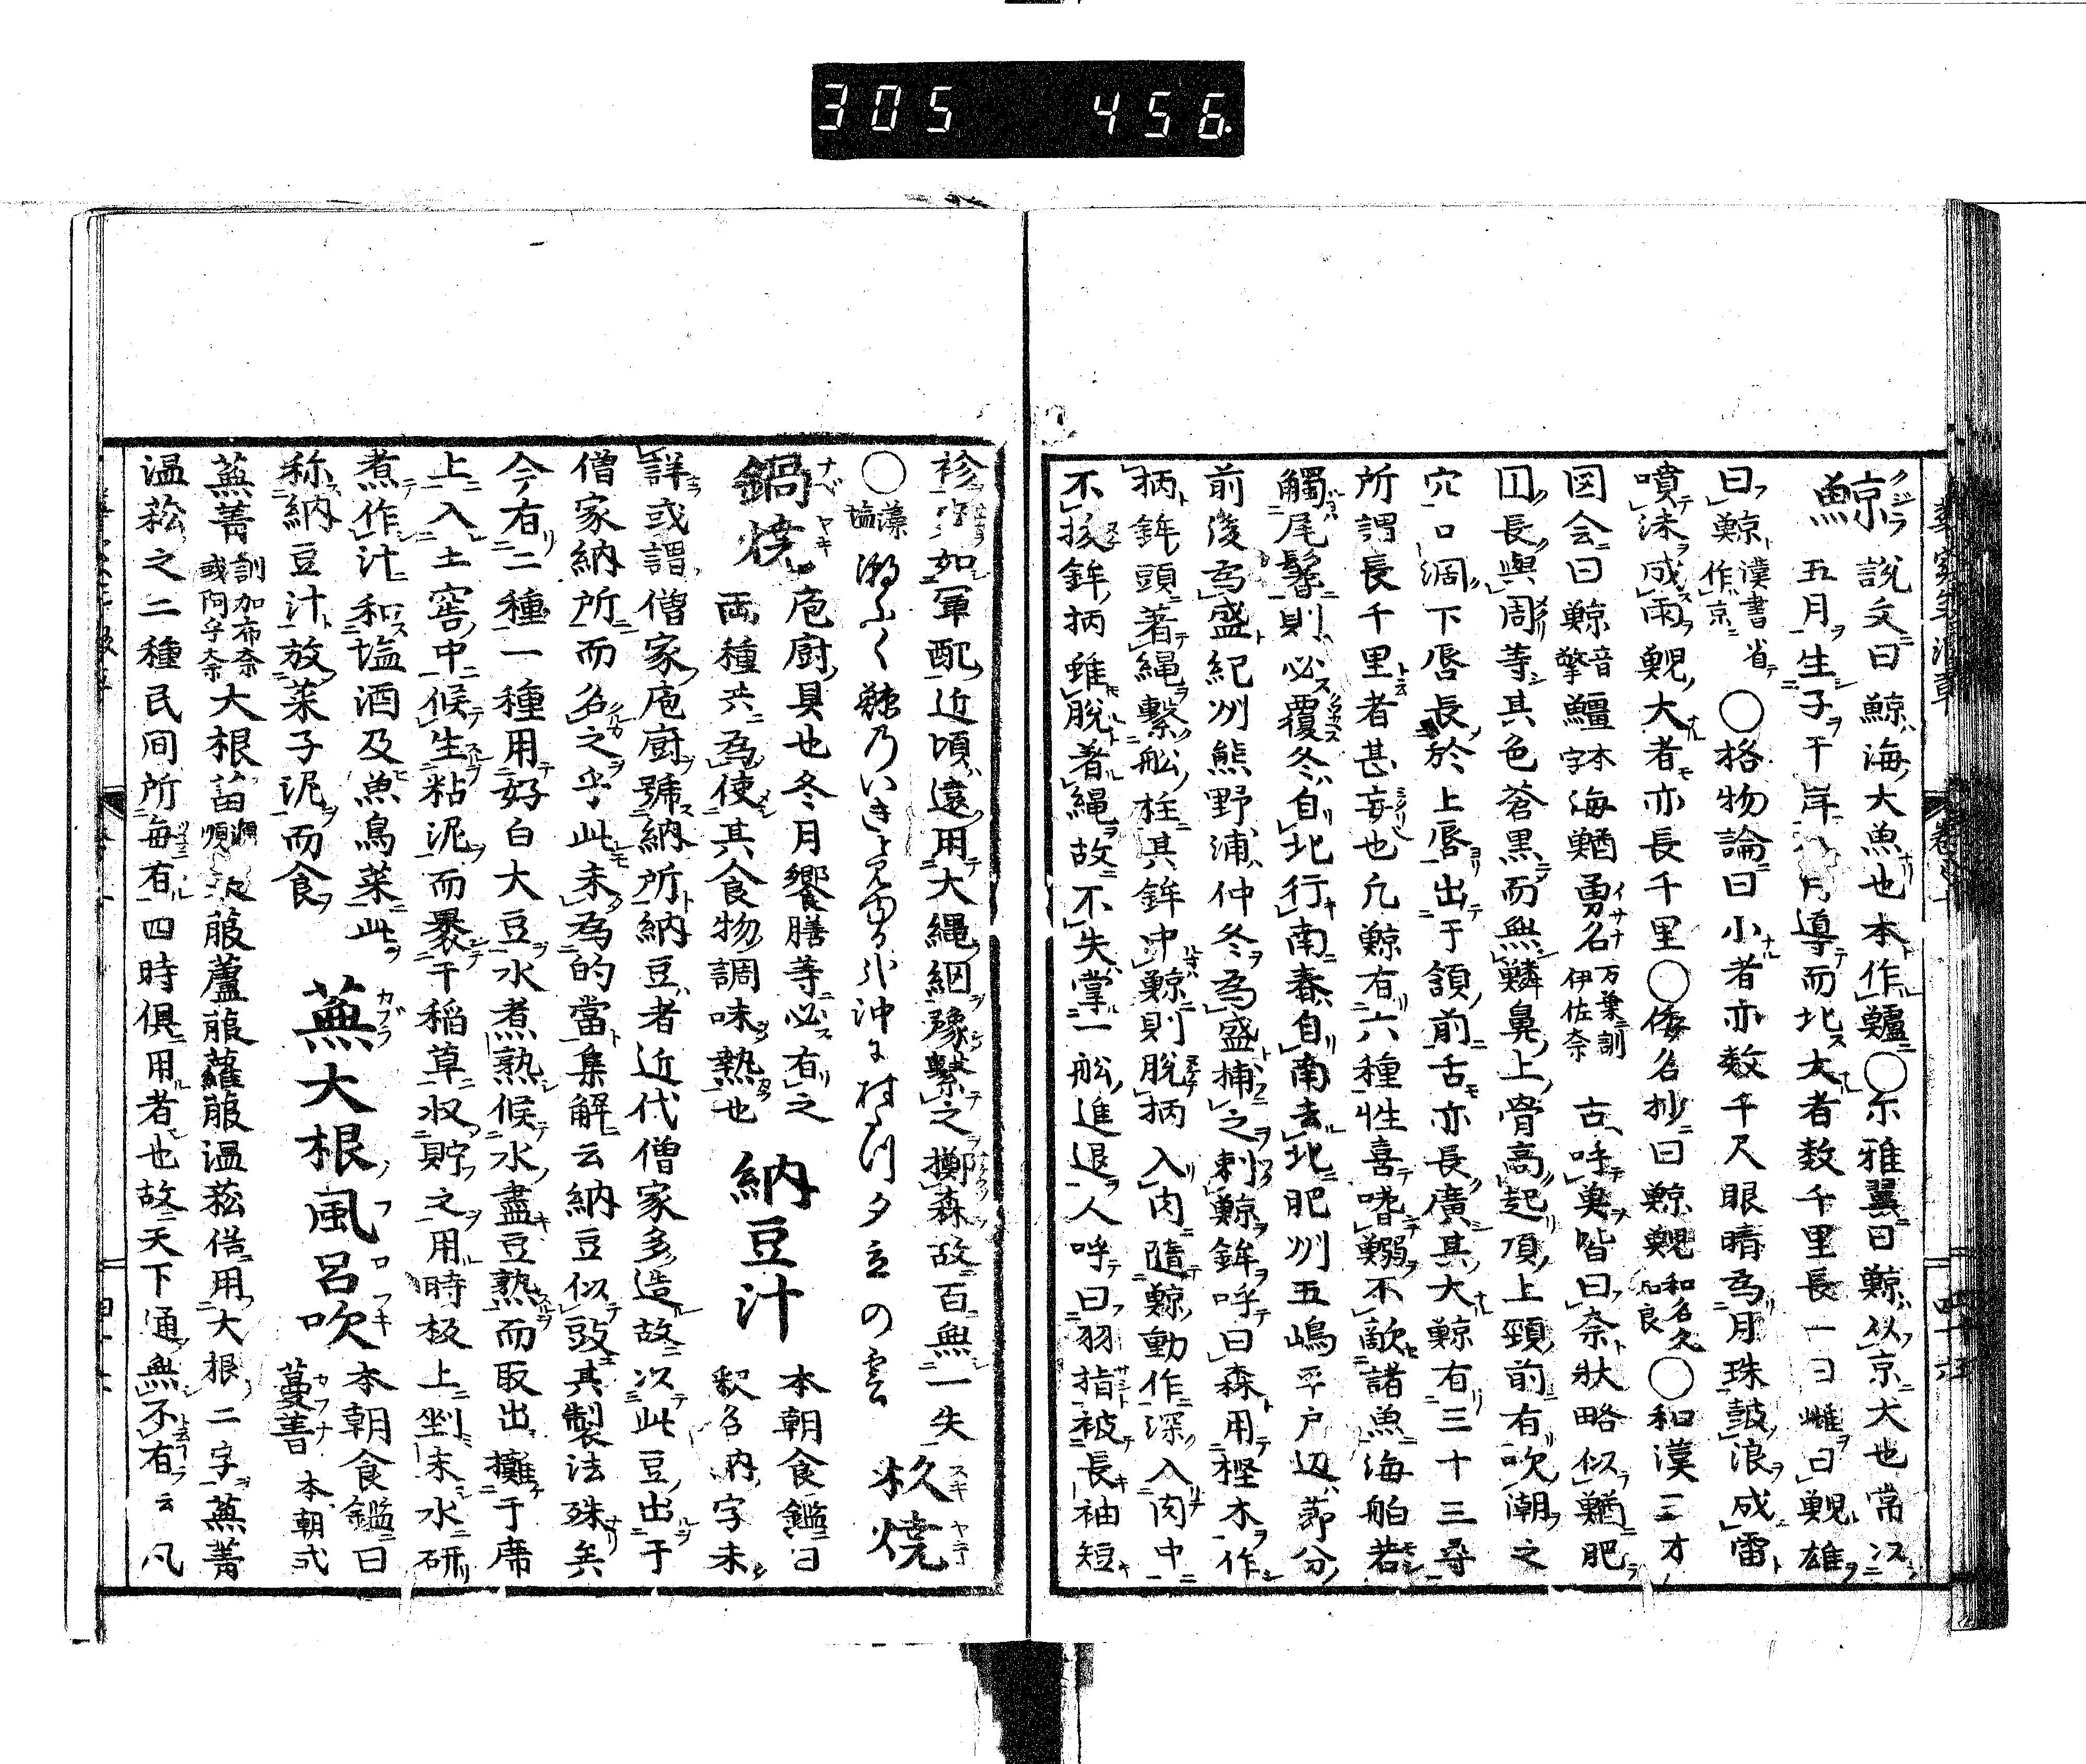 305 456
鯨 説文曰鯨海大魚也本作䲔○尓雅翼曰鯨从京大也常以
五月生子于岸八月導而北大者数千里長一曰雌曰鯢雄
曰鯨漢書省作京 ○格物論曰小者亦数千尺眼晴為月珠鼓浪成雷
噴沫成雨鯢大者亦長千里○倭名抄曰鯨鯢和名久良○和漢三才
図会曰鯨音擎鱷本字海鰌勇名イサナ万葉訓伊佐奈 古呼奠皆曰奈状略似鰌肥
囬長與周等其色蒼黒而無鱗鼻上骨高起頂上頸前有吹潮之
穴口濶下唇長於上唇出于頷前舌亦長廣其大鯨有三十三尋
所謂長千里者甚妄也凡鯨有六種性喜嗜鰯不敵諸魚海舶若
觸尾鬐則必覆冬自北行南春自南去北肥州五嶋平戸辺節分
前後為盛紀州熊野浦仲冬為盛捕之刺鯨鉾呼曰森用樫木作
柄鉾頭著縄繫舩柱其鉾中鯨則脱柄入肉隨鯨動作深入肉中
不抜鉾柄雖脱着縄故不失掌一舩進退人呼曰羽指被長袖短
袗如軍配近頃遠用大縄網豫繫之擲森故百無一失
○藻塩 潮ふく鯨乃いきと見 沖に村 夕立の雲 杦焼スキヤキ
鍋焼ナベヤキ 庖厨具也冬月饗膳等必有之
両種共為使其食物調味熱也 納豆汁 本朝食鑑曰
釈名納字未
詳或謂僧家庖厨號納所納豆者近代僧家多造故以此豆出于
僧家納所而名之乎此未為的當集解云納豆似豉其製法殊矣
今有二種一種用好白大豆水煮熟候水盡豆熟而取出攤于席
上入土窖中候生粘泥而褁干稲草収貯之用時板上剉末水研
煮作汁和塩酒及魚鳥菜此
称納豆汁放菜子泥而食 蕪大根風呂吹カブラノフロフキ 本朝食鑑曰
蔓菁カフナ本朝式
蕪菁訓加布奈或阿乎奈大根苗源順 菔蘆菔蘿菔温菘俗用大根二字蕪菁
温菘之二種民間所毎有四時俱用者也故天下通無不有云凡